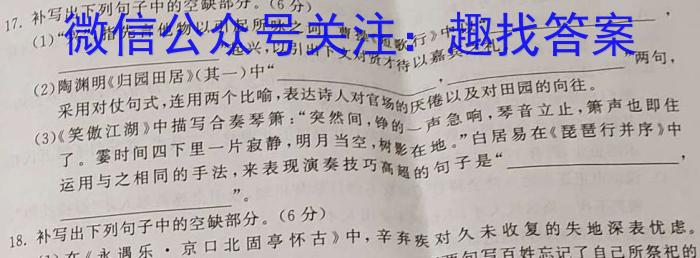 17. 补写出下列句子中的空缺部分。(6分)
微信公众号关注：趣找答案
(1)“兴”指先言他物以引起所咏之词,曹操《短歌行》中
起兴,以引出下文对贤才待以嘉宾之礼。
(2)陶渊明《归园田居》(其一)中“ , ”两句,
采用对仗句式,连用两个比喻,表达诗人对官场的厌倦以及对田园的向往。
(3)《笑傲江湖》中描写合奏琴箫:“突然间,铮的一声急响,琴音立止,箫声也即住
了。霎时间四下里一片寂静,明月当空,树影在地。”白居易在《琵琶行并序》中
运用与之相同的手法,来表现演奏技巧高超的句子是“ ,
”。
18. 补写出下列句子中的空缺部分。(6分)
(1)在《永遇乐·京口北固亭怀古》中,辛弃疾对久未收复的失地深表忧虑。
两句写百姓忘记了自己所祭祀的